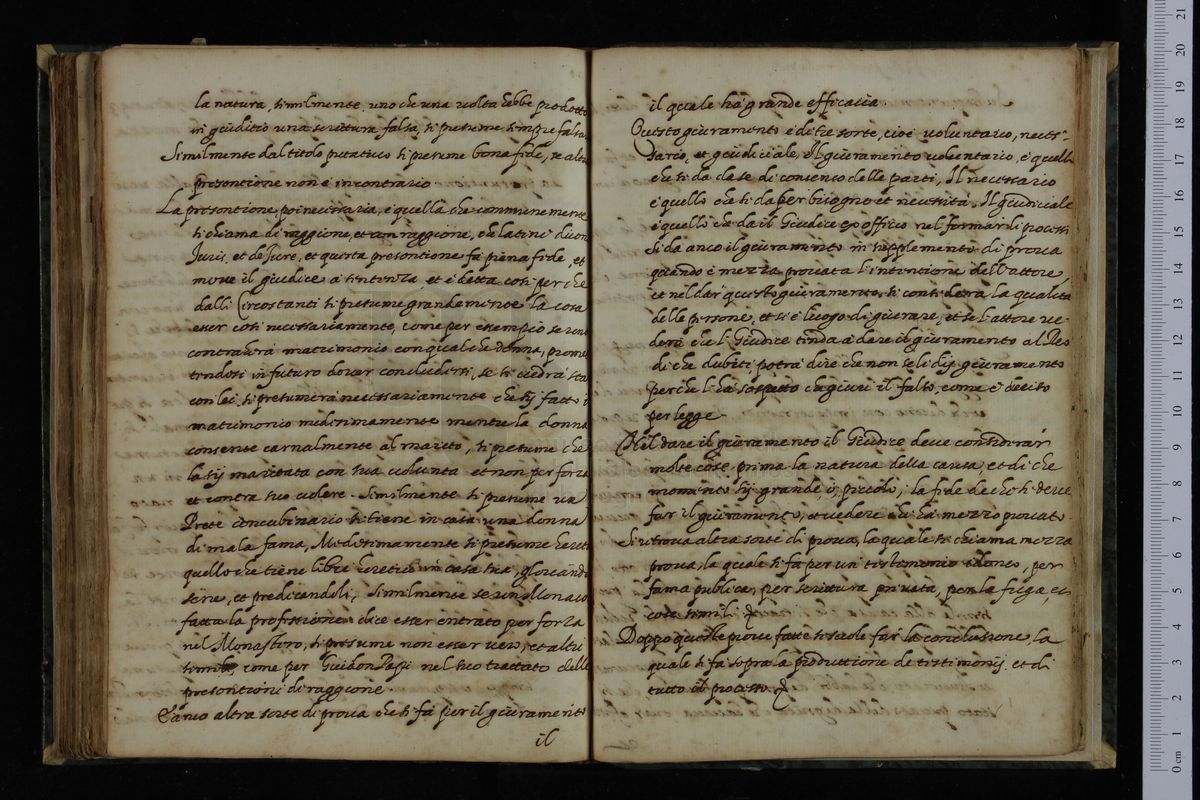 la natura, similmente uno che una volta hebbe prodotto
in giuditio una scrittura falsa, si presume sempre falsa
Similmente dal titolo putativo si presume bona fide, se altra
presontione non è in contrario
La presontione poi necessaria, è quella che communemente
si chiama di raggione, et con raggione, che latini dicon
Juris, et de Jure, et questa presontione fa piena fide, et
move il giudice a sentenza, et è detta così perche
dalli Circostanti si presume grandemente la cosa
esser così necessariamente, come per essempio se uno
contraherà matrimonio con qualche donna, prome
tendosi in futuro dover concludersi, se si vederà sta
con lei, si presumerà necessariamente che sij fatto il
matrimonio medesimamente mentre la donna
consente carnalmente al marito, si presume che
la sij maritata con sua volunta et non per forza
et contra suo volere. Similmente si presume un
Prete concubinario si tiene in casa una donna
di mala fama, Medesimamente si presume heret
quello che tiene libri heretici in casa sua, gloriando
sene, et predicandoli, Similmente se un Monaco
fatta la professione dice esser entrato per forza
nel Monastero, si presume non esser vero, et altri
simili, come per Guidon Papi nel suo trattato delle
presontioni di raggione.
È anco altra sorte di prova che si fa per il giuramento
il
il quale ha grande efficacia.
Questo giuramento è di tre sorte, cioè voluntario, neces-
sario, et giudiciale, Il giuramento voluntario, è quello
che si da da se di consenso delle parti, Il necessario
è quello che si da per bisogno et necessità. Il giudiciale
è quello che da il Giudice ex officio nel formar li processi
Si da anco il giuramento in supplemento di prova
quando è mezza provata l'intentione dell'attore,
et nel dar questo giuramento, si considera la qualità
delle persone, et si è luogo di giurare, et se l'attore ve-
derà che l'Giudice tenda a dare il giuramento al Reo
di che dubiti, potrà dire che non se li dij giuramento
perche l'ha sospetto che giuri il falso, come è decito
per legge
Nel dare il giuramento il Giudice deve considerar
molte cose, prima la natura della causa, et di che
momento sij grande ò, piccolo, la fede de chi si deve
far il giuramento, et vedere chi ha mezzo provato.
Si ritrova altra sorte di prova, la quale si chiama mezza
prova, la quale si fa per un testemonio idoneo, per
fama publica, per scrittura privata, per la fuga, et
cose simili
Doppo queste prove fatte si suole far la conclusione, la
quale si fa sopra la produttione de testimonij et di
tutto il processo.